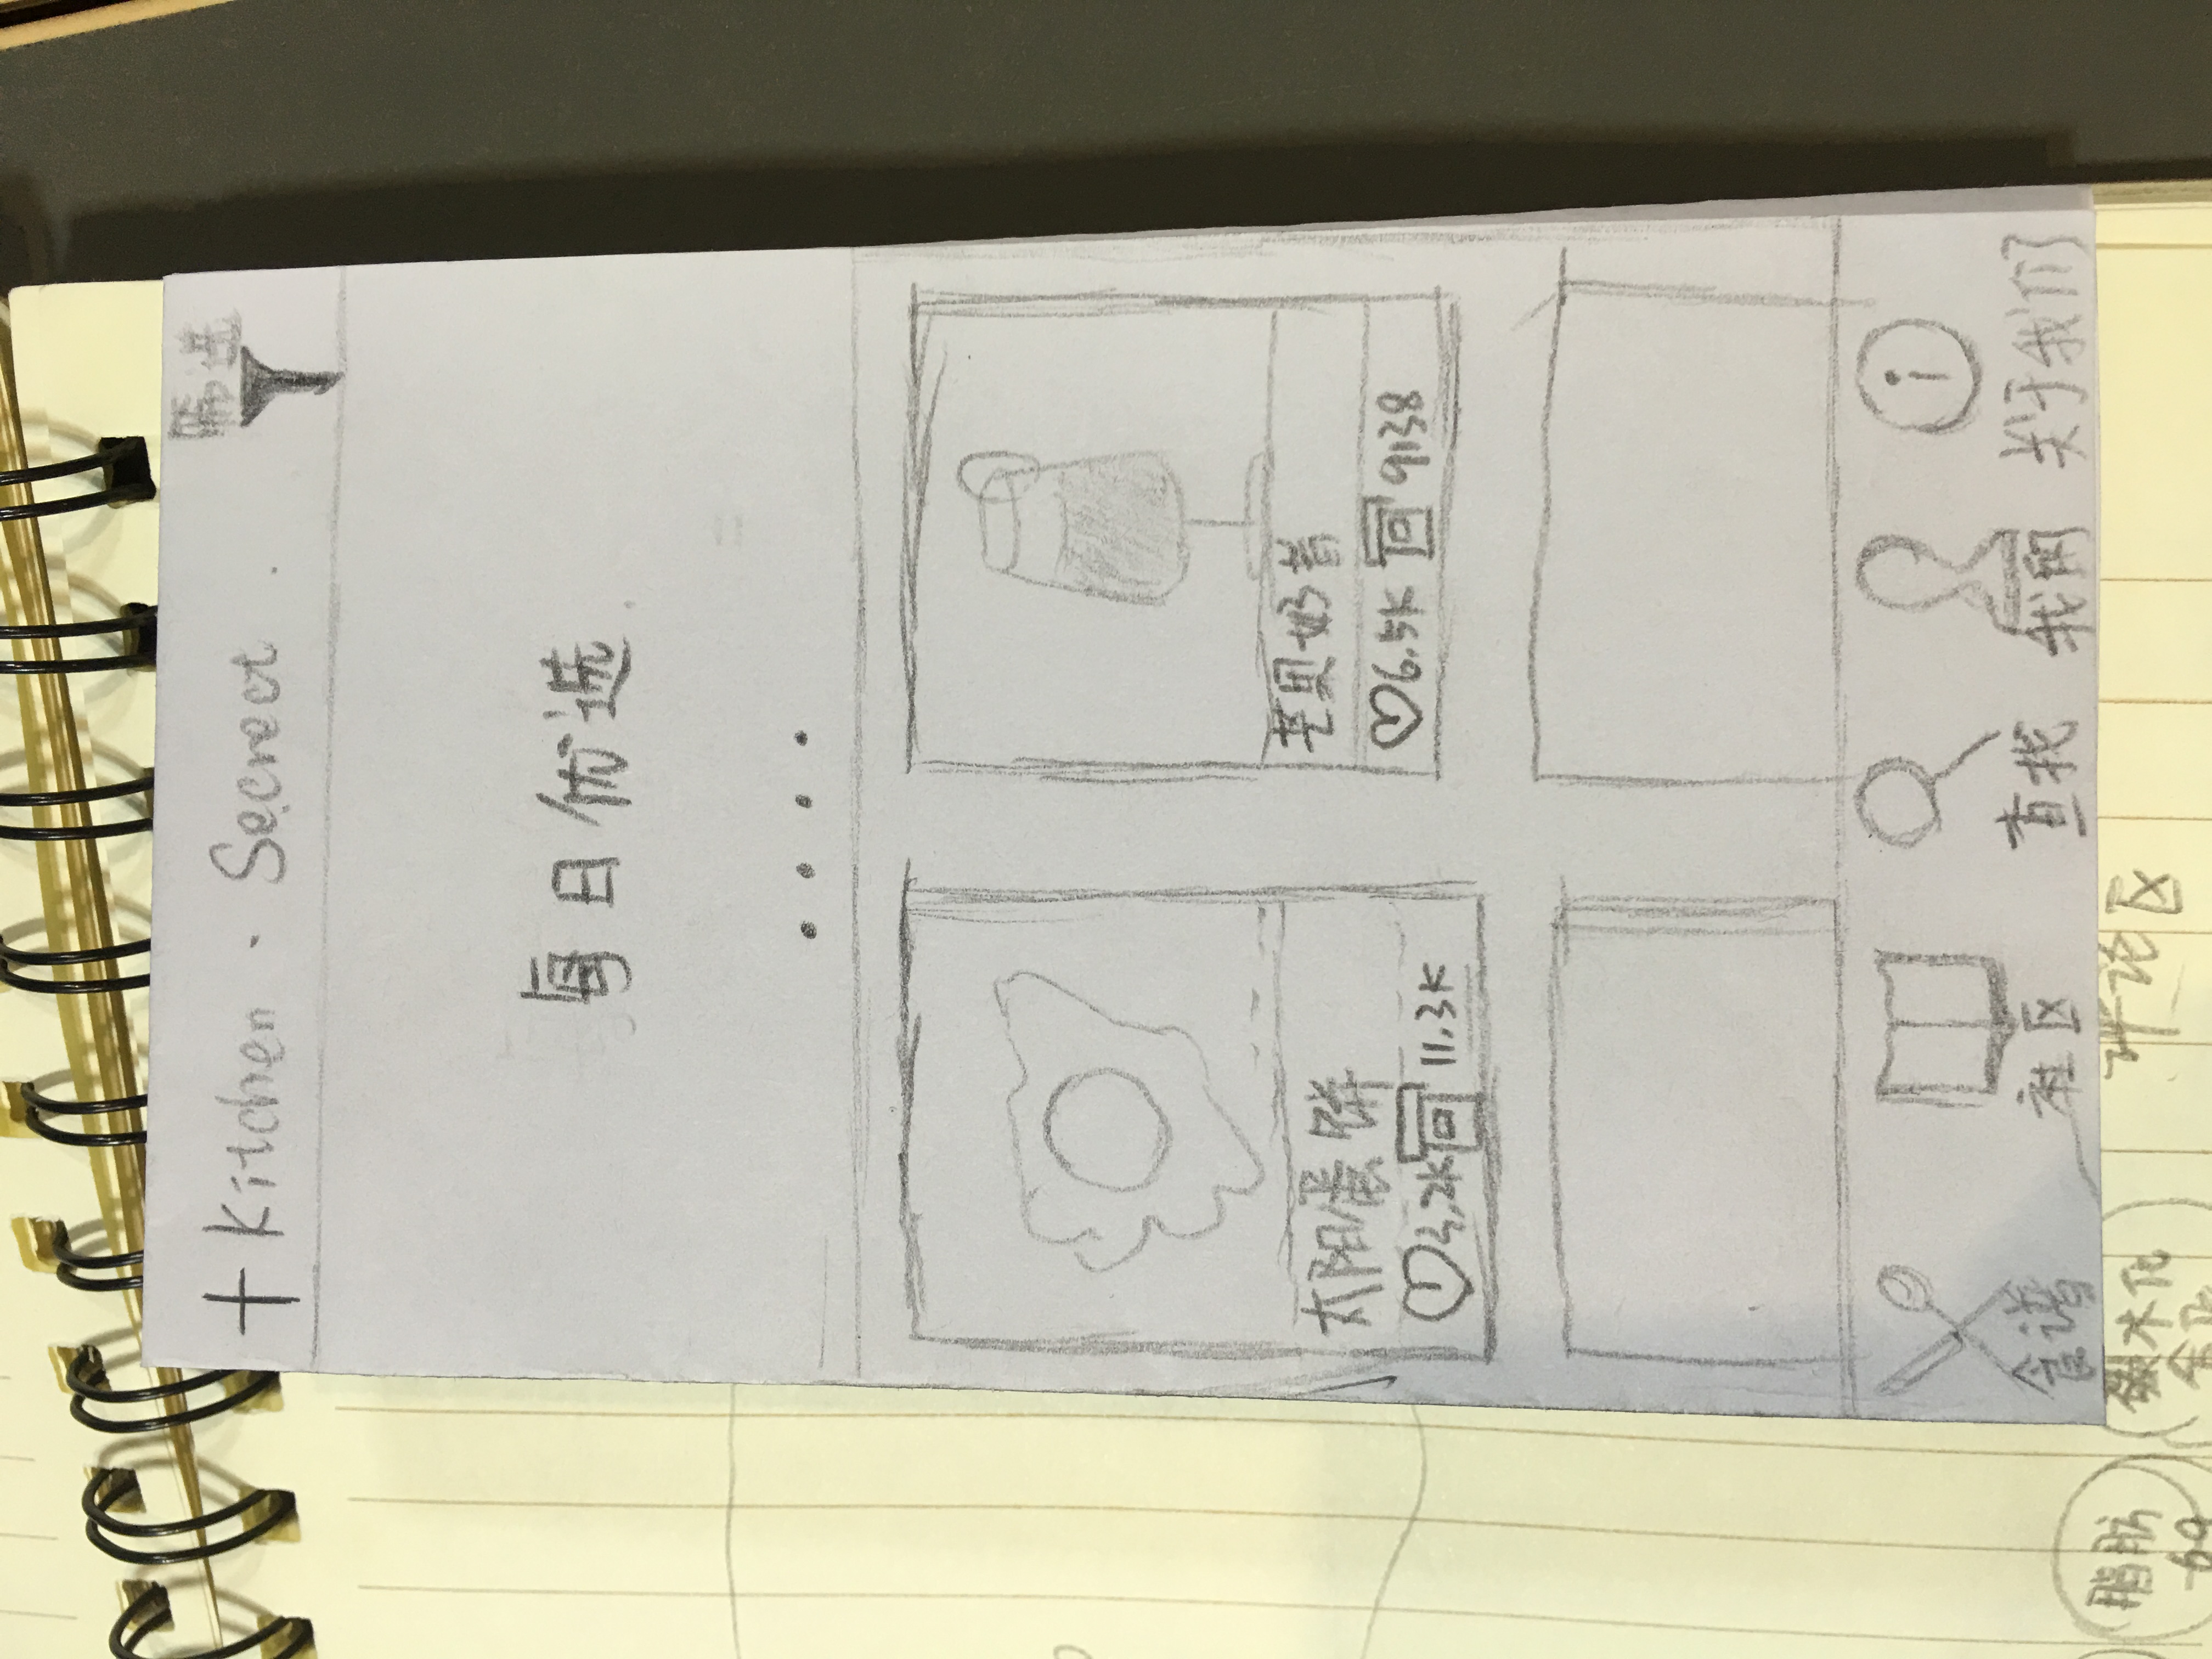 + Kitchen · Secret ·
筛选
每日优选
太阳蛋饼
5.2K 11.3K
芒果奶昔
6.5K 9138
食谱
社区
查找
我的
关于我们
脂肪
69
碳水化
评论区